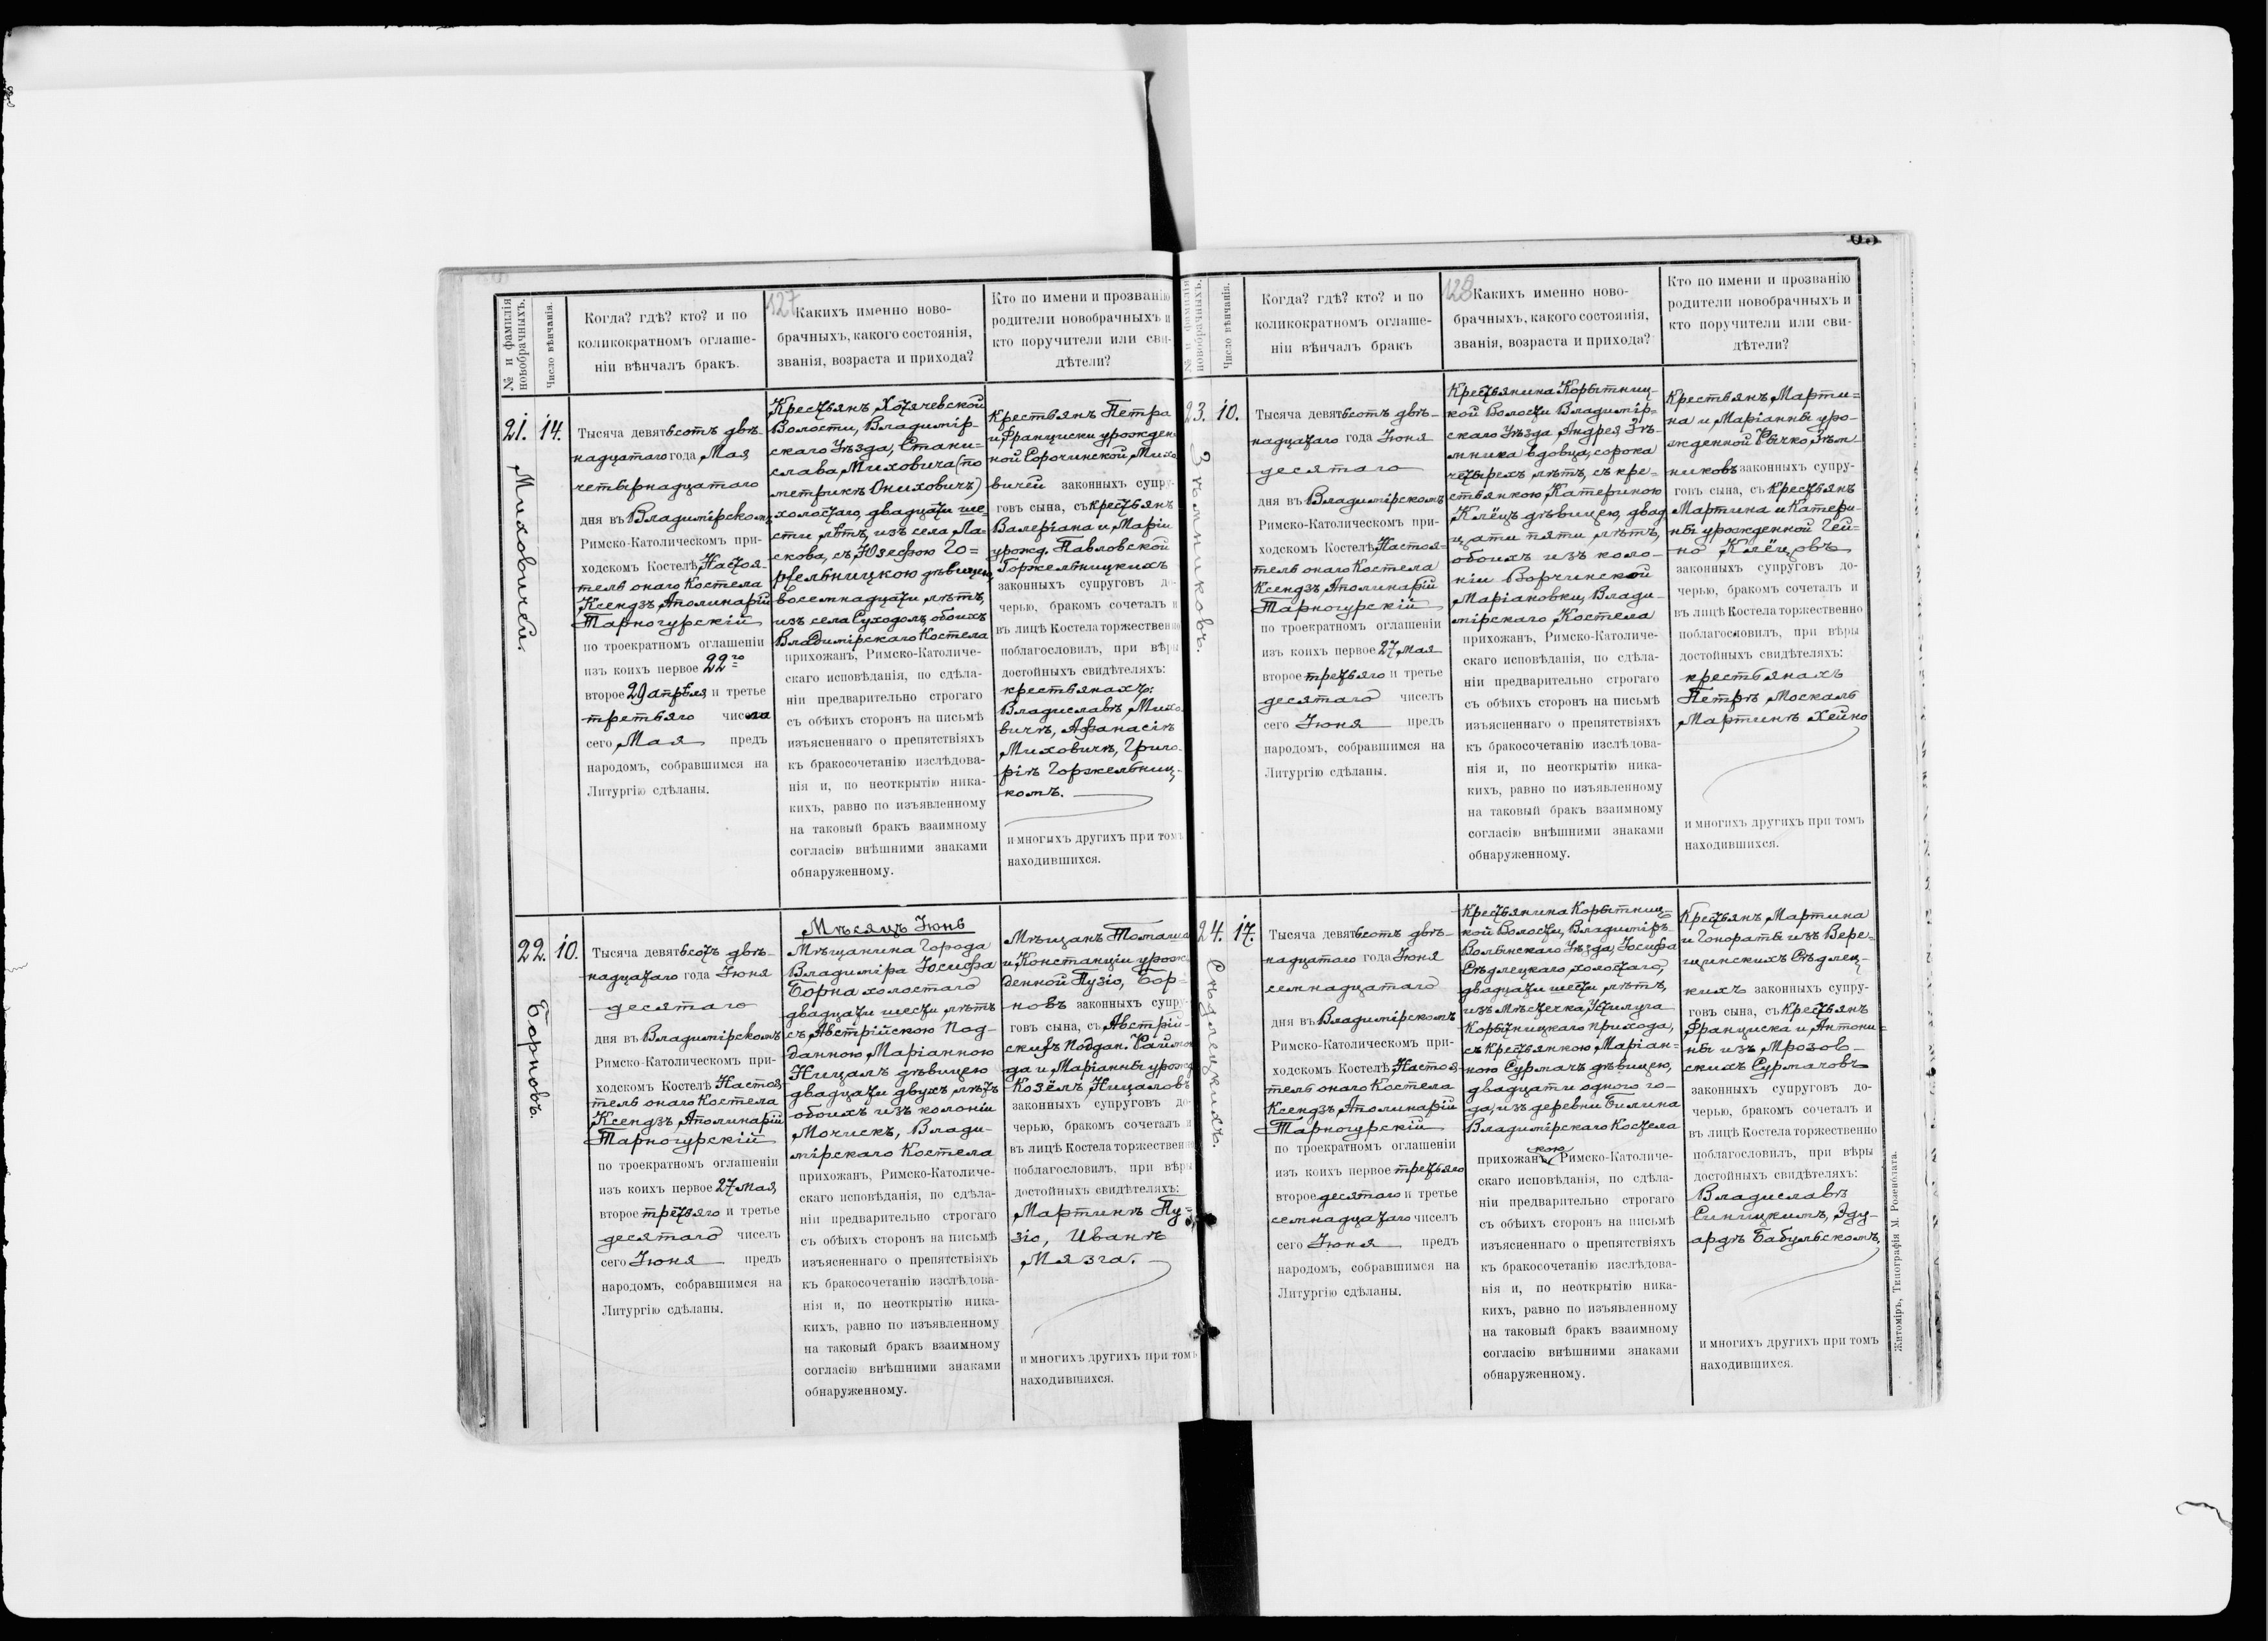 № и фамилія
новобрачныхъ.
Число вѣнчанія.
Когда? гдѣ? кто? и по
коликократномъ оглаше-
ніи вѣнчалъ бракъ.
127
Какихъ именно ново-
брачныхъ, какого состоянія,
званія, возраста и прихода?
Кто по имени и прозванію
родители новобрачныхъ и
кто поручители или сви-
дѣтели?
21.
Миховичей.
14.
Тысяча девятьсотъ двѣ-
надцатаго года Мая
четырнадцатаго
дня въ Владимірскомъ
Римско-Католическомъ при-
ходскомъ Костелѣ Настоя-
тель онаго Костела
Ксендзъ Аполинарій
Тарногурскій
по троекратномъ оглашеніи
изъ коихъ первое 22го
второе 29 апрѣля и третье
третьяго чисела
сего Мая предъ
народомъ, собравшимся на
Литургію сдѣланы.
Крестьянъ Хотячевской
Волости, Владимір-
скаго Уѣзда, Стани-
слава Миховича (по
метрикѣ Онихович)
холостаго, двадцати ше-
сти лѣтъ, изъ села Ла-
скова, съ Юзефою Го=
ржельницкою дѣвицею
восемнадцати лѣтъ,
изъ села Суходолъ, обоихъ
Владимірскаго Костела
прихожанъ, Римско-Католиче-
скаго исповѣданія, по сдѣла-
ніи предварительно строгаго
съ обѣихъ сторонъ на письмѣ
изъясненнаго о препятствіяхъ
къ бракосочетанію изслѣдова-
нія и, по неоткрытію ника-
кихъ, равно по изъявленному
на таковый бракъ взаимному
согласію внѣшними знаками
обнаруженному.
Крестьянъ Петра
и Франциски урожден
ной Сорочинской Михо
вичей законныхъ супру-
говъ сына, съ крестьянъ
Валеріана и Маріи
урожд. Павловской
Горжельницкихъ
законныхъ супруговъ до-
черью, бракомъ сочеталъ и
въ лицѣ Костела торжественно
поблагословилъ, при вѣры
достойныхъ свидѣтеляхъ:
крестьянахъ:
Владиславѣ Михо-
вичѣ, Афанасіѣ
Миховичѣ, Григо-
ріѣ Горжельниц-
комъ.
и многыхъ другихъ при томъ
находившихся.
22.
Борновъ.
10.
Тысяча девятьсотъ двѣ-
надцатаго года Іюня
десятаго
дня въ Владимірскомъ
Римско-Католическомъ при-
ходскомъ Костелѣ Настоя
тель онаго Костела
Ксендзъ Аполинарій
Тарногурскій
по троекратномъ оглашеніи
изъ коихъ первое 27 мая,
второе третьяго и третье
десятаго чиселъ
сего Іюня предъ
народомъ, собравшимся на
Литургію сдѣланы.
Мѣсяцъ Іюнь
Мѣщанина Города
Владиміра Іосифа
Борна холостаго
двадцати шести лѣтъ
съ Австрійскою под-
данною Маріанною
Ницалъ дѣвицею
двадцати двухъ лѣтъ
обоихъ изъ колоніи
Мочискъ, Влади-
мірскаго Костела
прихожанъ, Римско-Католиче-
скаго исповѣданія, по сдѣла-
ніи предварительно строгаго
съ обѣихъ сторонъ на письмѣ
изъясненнаго о препятствіяхъ
къ бракосочетанію изслѣдова-
нія и, по неоткрытію ника-
кихъ, равно по изъявленному
на таковый бракъ взаимному
согласію внѣшними знаками
обнаруженному.
Мѣщанъ Томаша
и Констанціи урож-
денной Пузіо, Бор-
новъ законныхъ супру-
говъ сына, съ Австрій-
скихъ поддан. Раймон
да и Маріанны урожд
Козёлъ, Ницаловъ
законныхъ супруговъ до-
черью, бракомъ сочеталъ и
въ лицѣ Костела торжественно
поблагословилъ, при вѣры
достойныхъ свидѣтеляхъ:
Мартинѣ Пу-
зіо, Иванѣ
Мязга.
и многихъ другихъ при томъ
находившихся.
№ и фамилія
новобрачныхъ.
Число вѣнчанія.
Когда? гдѣ? кто? и по
коликократномъ оглаше-
ніи вѣнчалъ бракъ
128
Какихъ именно ново-
брачныхъ, какого состоянія,
званія, возраста и прихода?
Кто по имени и прозванію
родители новобрачныхъ и
кто поручители или сви-
дѣтели?
23.
Зѣмниковъ.
10.
Тысяча девятьсотъ двѣ-
надцатаго года Іюня
десятаго
дня въ Владимірскомъ
Римско-Католическомъ при-
ходскомъ Костелѣ Настоя=
тель онаго Костела
Ксендзъ Аполинарій
Тарногурскій
по троекратномъ оглашеніи
изъ коихъ первое 27 мая
второе третьяго и третье
десятаго чиселъ
сего Іюня предъ
народомъ, собравшимся на
Литургію сдѣланы.
Крестьянина Корытниц-
кой Волости Владимір=
скаго Уѣзда Андрея Зѣ-
мника вдовца, сорока
четырехъ лѣтъ, съ кре-
стьянкою Катериною
Клёцъ дѣвицею, двад
цати пяти лѣтъ,
обоихъ изъ коло-
ніи Ворчинской
Маріановки, Влади-
мірскаго Костела
прихожанъ, Римско-Католиче-
скаго исповѣданія, по сдѣла-
ніи предварительно строгаго
съ обѣихъ сторонъ на письмѣ
изъясненнаго о препятствіяхъ
къ бракосочетанію изслѣдова-
нія и, по неоткрытію ника-
кихъ, равно по изъявленному
на таковый бракъ взаимному
согласію внѣшними знаками
обнаруженному.
Крестьянъ Марти=
на и Маріанны уро-
жденной Рычко, Зѣм
никовъ законныхъ супру-
говъ сына, съ Крестьянъ
Мартина и Катери-
ны урожденной Гей=
но Клёцовъ
законныхъ супруговъ до-
черью, бракомъ сочеталъ и
въ лицѣ Костела торжественно
поблагословилъ, при вѣры
достойныхъ свидѣтеляхъ:
крестьянахъ
Петрѣ Москаль
Мартинѣ Хейно
и многихъ другихъ при томъ
находившихся.
24.
Сѣдлецкихъ.
17.
Тысяча девятьсотъ двѣ-
надцатаго года Іюня
семнадцатаго
дня въ Владимірскомъ
Римско-Католическомъ при-
ходскомъ Костелѣ Настоя-
тель онаго Костела
Ксендзъ Аполинарій
Тарногурскій
по троекратномъ оглашеніи
изъ коихъ первое третьяго
второе десятаго и третье
семнадцатаго чиселъ
сего Іюня предъ
народомъ, собравшимся на
Литургію сдѣланы.
Крестьянина Корытниц-
кой Волости, Владиміръ-
Волынскаго Уѣзда, Іосифа
Сѣдлецкаго холостаго,
двадцати шести лѣтъ,
изъ Мѣстечка Устилуга
Корытницкаго прихода,
съ Крестьянкою Маріан-
ною Сурмачъ дѣвицею,
двадцати одного го-
да, изъ деревни Билина
Владимірскаго Костела
кою
прихожанъ, Римско-Католиче-
скаго исповѣданія, по сдѣла-
ніи предварительно строгаго
съ обѣихъ сторонъ на письмѣ
изъясненнаго о препятствіяхъ
къ бракосочетанію изслѣдова-
нія и, по неоткрытію ника-
кихъ, равно по изъявленному
на таковый бракъ взаимному
согласію внѣшними знаками
обнаруженному.
Крестьянъ Мартина
и Гонораты изъ Вере-
щинскихъ Сѣдлец-
кихъ законныхъ супру-
говъ сына, съ Крестьянъ
Франциска и Антони=
ны изъ Мрозов-
скихъ Сурмачовъ
законныхъ супруговъ до-
черью, бракомъ сочеталъ и
въ лицѣ Костела торжественно
поблагословилъ, при вѣры
достойныхъ свидѣтеляхъ:
Владиславѣ
Синицкимъ, Эду-
ардѣ Бабульскомъ,
и многихъ другихъ при томъ
находившихся.
Житоміръ, Типографія М. Розенблата.